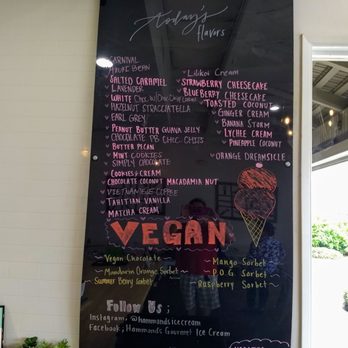 today's
flavors
CARNIVAL
KAUAI BEAN
SALTED CARAMEL
LAVENDER
WHITE CHOC.
HAZELNUT STRACCIATELLA
EARL GREY
PEANUT BUTTER GUAVA JELLY
CHOCOLATE PB CHOC CHIPS
BUTTER PECAN
MINT COOKIES
SIMPLY CHOCOLATE
COOKIES & CREAM
CHOCOLATE COCONUT MACADAMIA NUT
VIETNAMESE COFFEE
TAHITIAN VANILLA
MATCHA CREAM
Lilikoi Cream
STRAWBERRY CHEESECAKE
BLUEBERRY CHEESECAKE
TOASTED COCONUT
GINGER CREAM
BANANA STORM
LYCHEE CREAM
PINEAPPLE COCONUT
ORANGE DREAMSICLE
VEGAN
Vegan Chocolate
Mandarin Orange Sorbet
Summer Berry Sorbet
Mango Sorbet
P.O.G. Sorbet
Raspberry Sorbet
Follow Us ;
Instagram; @hammondsicecream
Facebook; Hammonds Gourmet Ice Cream